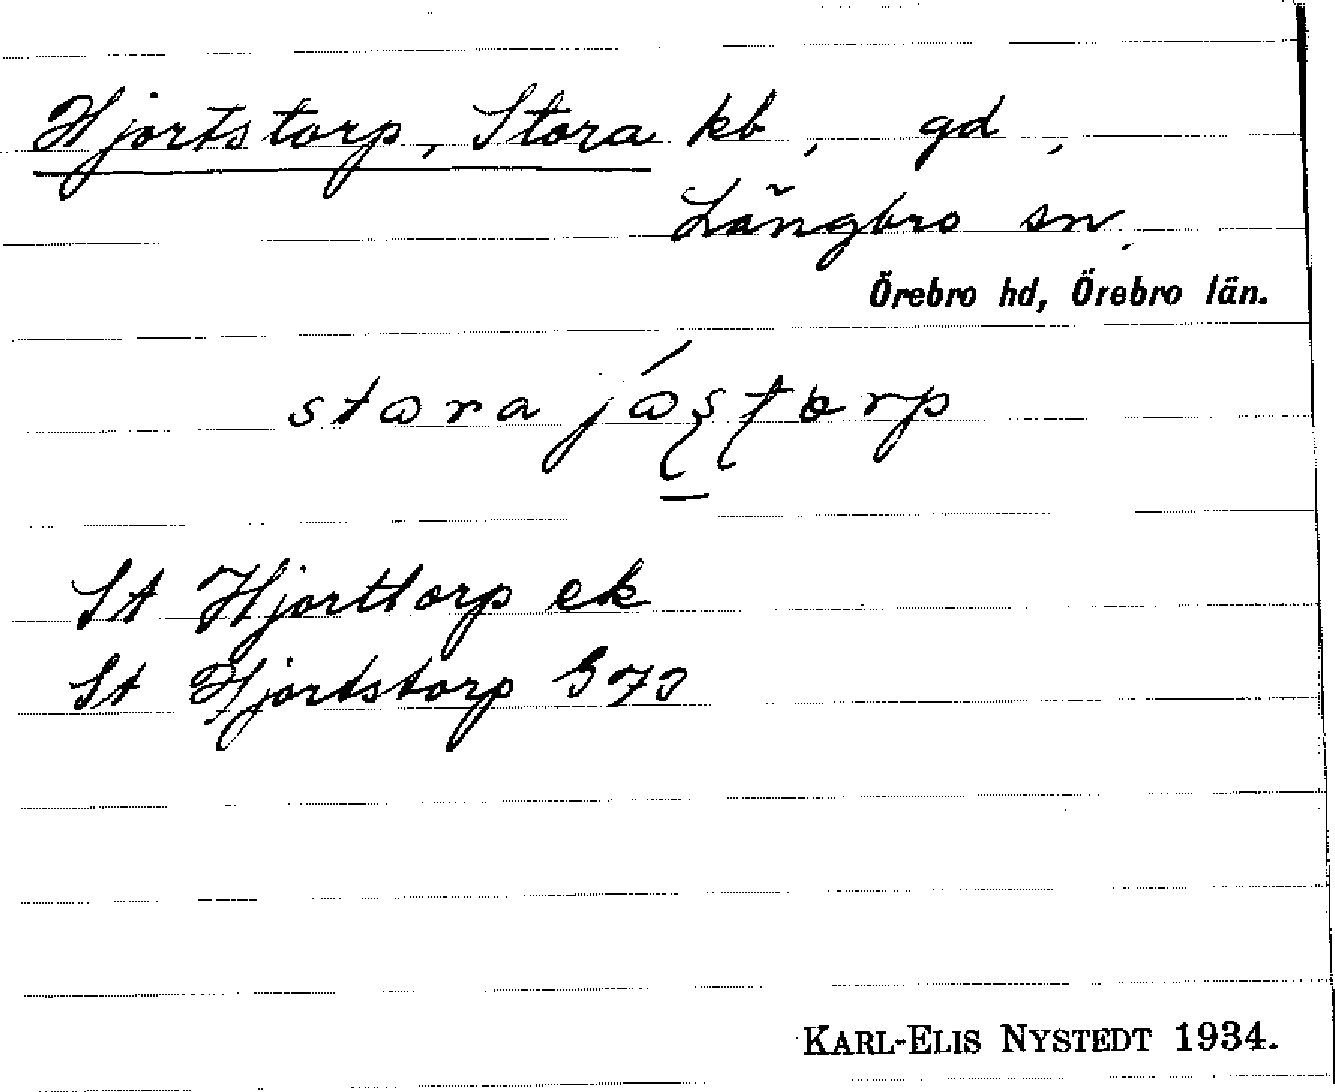 Hjortstorp, Stora kb, gd,
Längbro sn.
Örebro hd, Örebro län.
stora jóstorp
St Hjorttorp ek
St Hjortstorp GJO
KARL-ELIS NYSTEDT 1934.